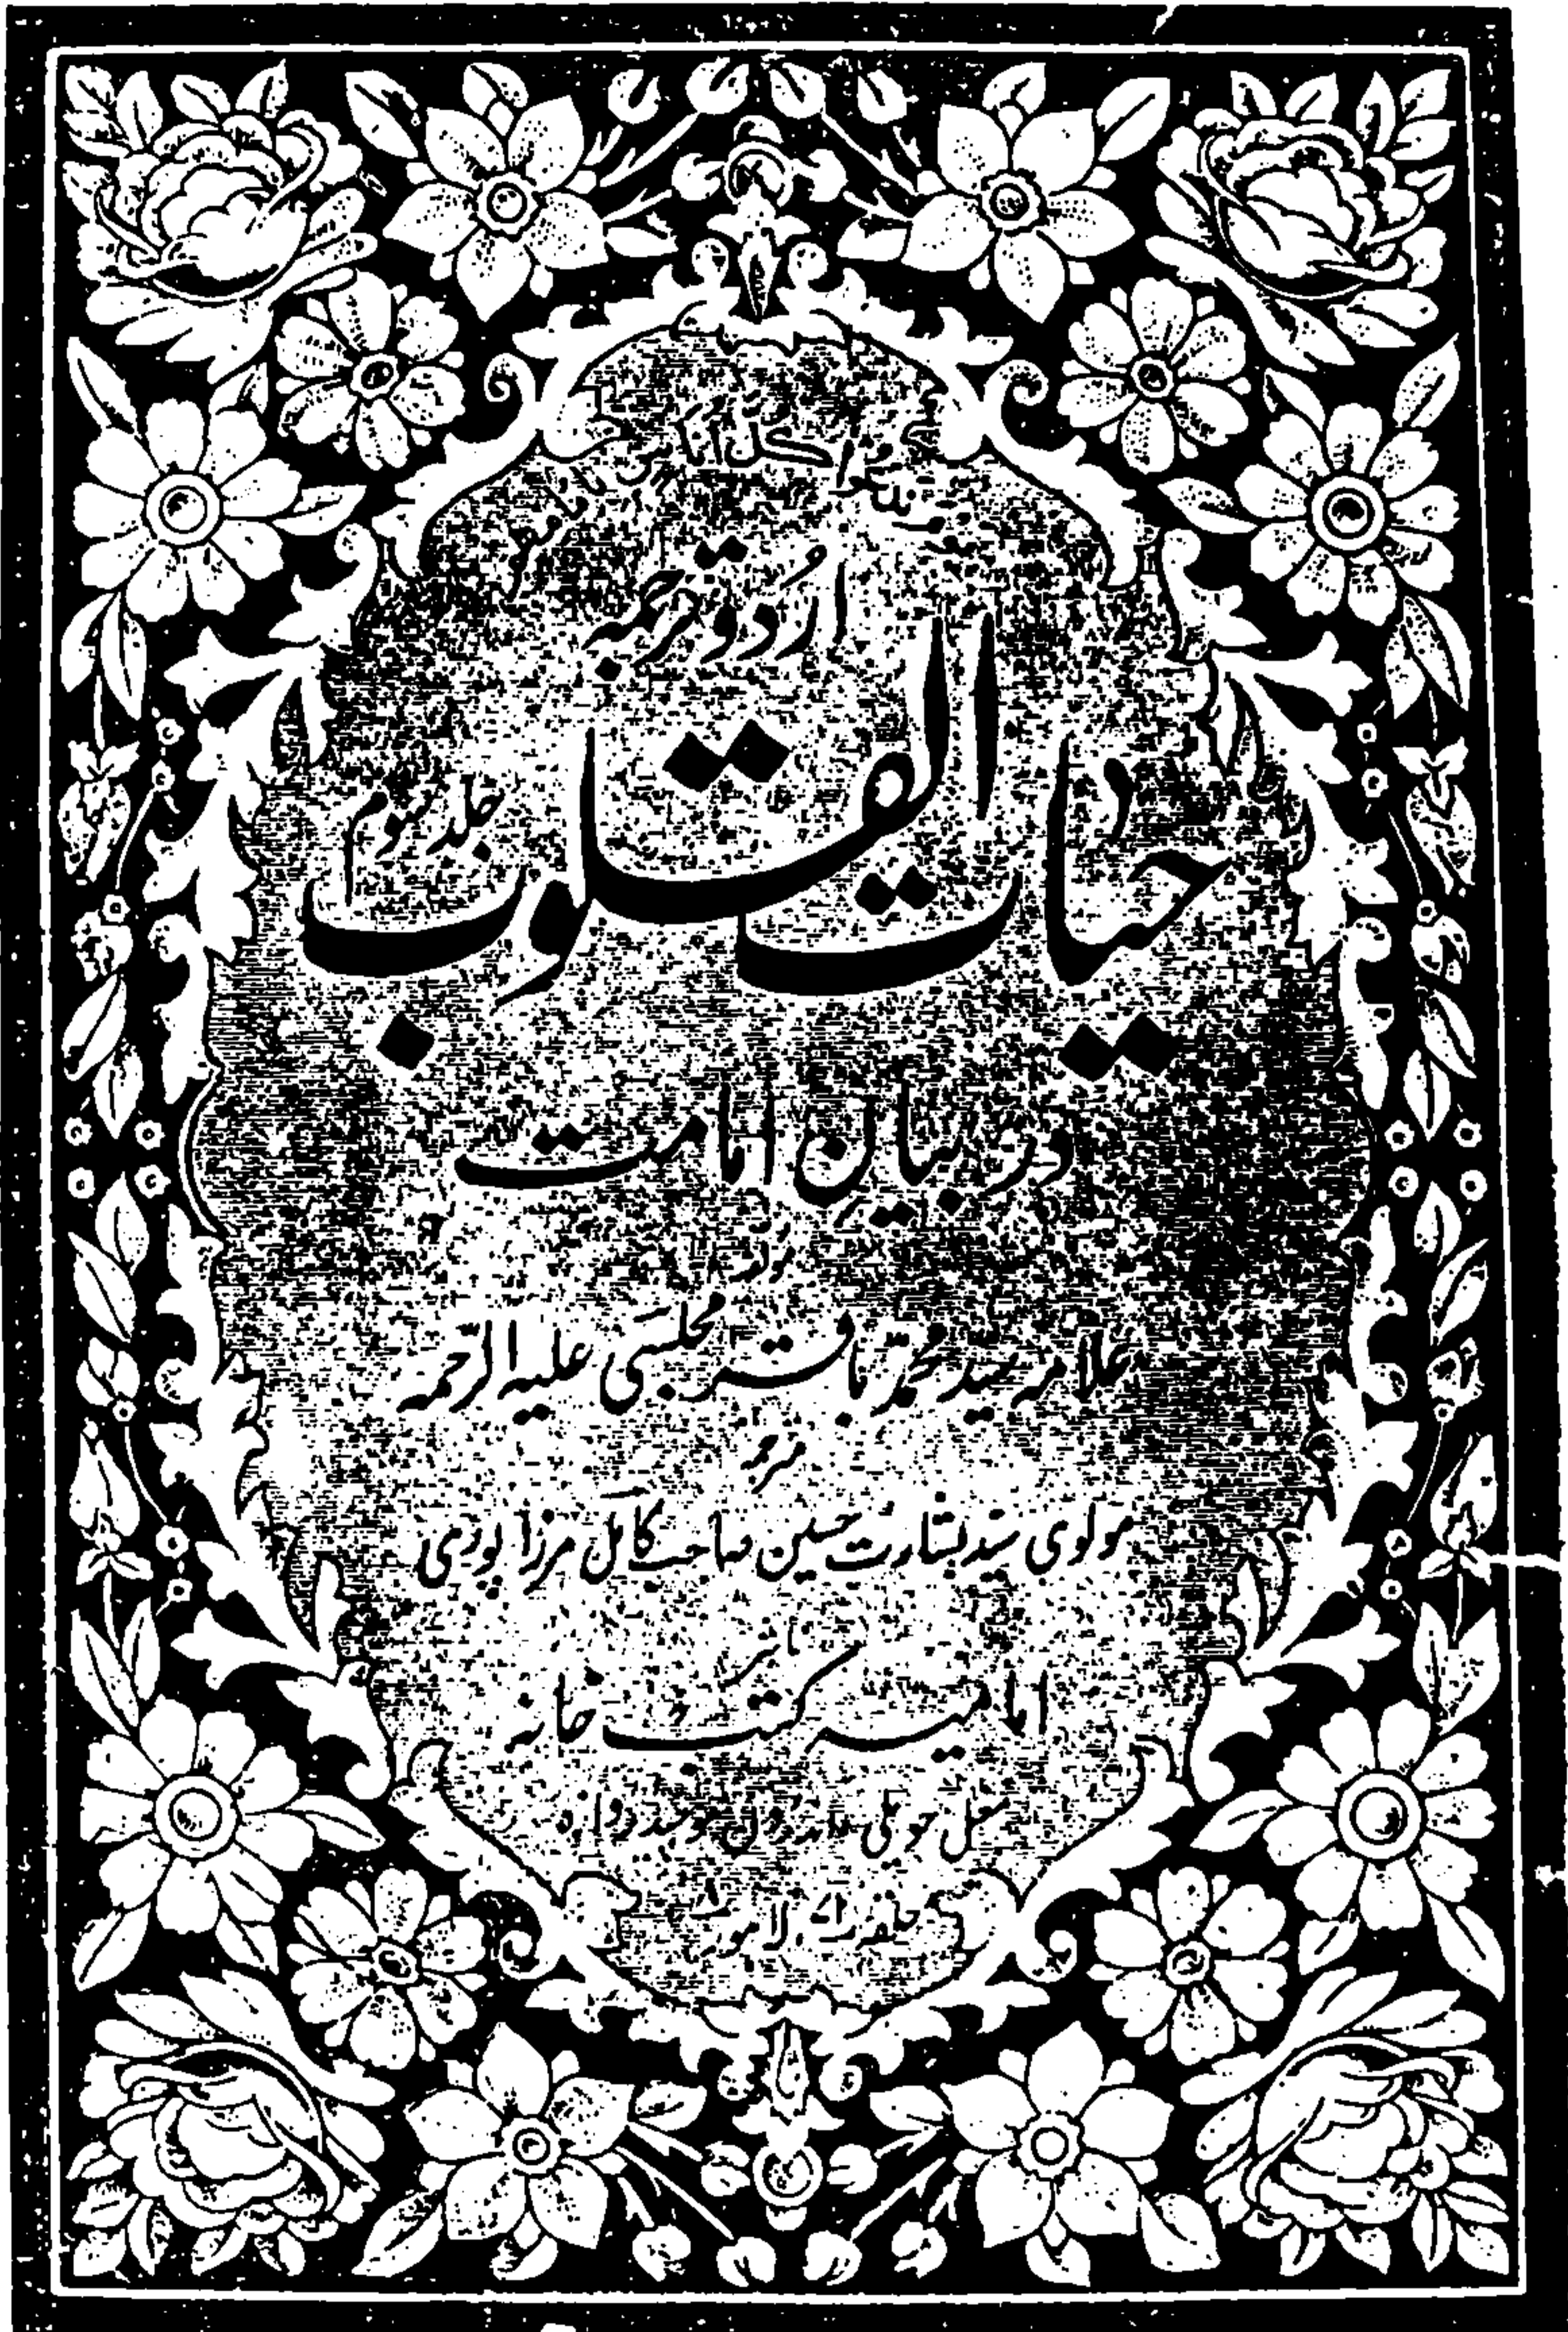 يَوْمَ نَدْعُوا كُلَّ أُنَاسٍ بِإِمَامِهِمْ
اُردو ترجمہ
حیات القلوب
جلد سوم
در بیان امامت
مولفہ
علامہ سید محمد باقر مجلسی علیہ الرحمہ
مترجمہ
مولوی سید بشارت حسین صاحب کامل مرزا پوری
ناشر
امامیہ کتب خانہ
مغل حویلی اندرون موچی دروازہ
حلقہ ۲۵ لاہور ۸